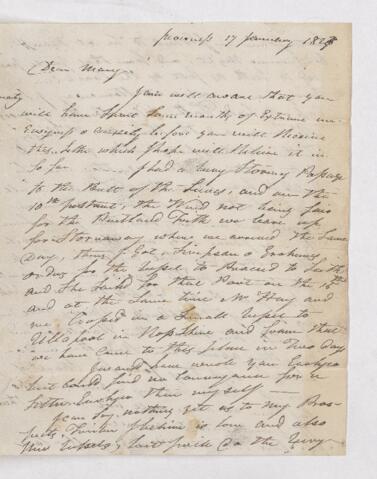 17 January 182
Dear Mary
I am well aware that you
will have spent some months of Extreme un-
Easyness & anxiety before you will Receive
this, the which I hope will Relieve it in
so far I had a very Stormy Passage
to the Butt of the Lewis, and on the
10th instant, the Wind not being fair
for the Pentland Firth we bore up
for Stornaway where we arrived the Same
Day, there I Got Simpson &
orders for the Vessel to Proceed to Leith
and She Sailed for that Port on the 15th
and at the Same time Mr Hay and
me Crossed in a Small Vessel to
Ullapool in Rosshire and from that
we have Come to this place in Two Days
I would have wrote you
but could find no Conveyance for a
letter than myself
I can Say nothing yet as to my Pros-
pects, is low and also
this Vessels, but will do the very